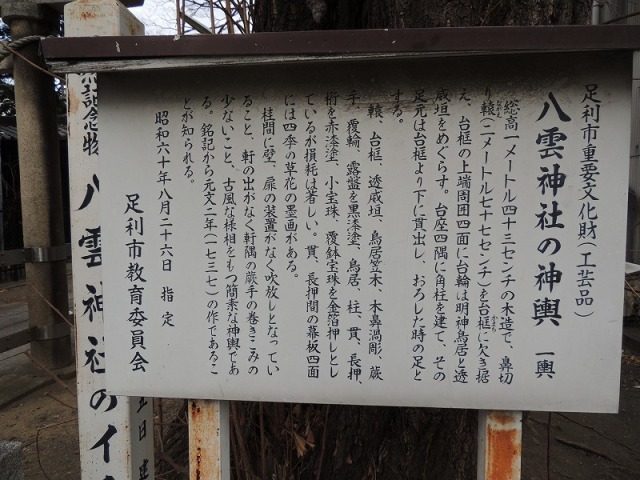 足利市重要文化財（工芸品）
八雲神社の神輿 一輿
総高一メートル四十三センチの木造で、鼻切
り轅（二メートル七十七センチ）を台框に欠き据
え、台框の上端周囲四面に台輪は明神鳥居と透
彧垣をめぐらす。台座四隅に角柱を建て、その
足元は台框より下に貫出し、おろした時の足と
する。
轅、台框、透彧垣、鳥居笠木、木鼻渦彫、蕨
手、覆輪、露盤を黒漆塗、鳥居、柱、貫、長押、
桁を赤漆塗、小宝珠、覆鉢宝珠を金箔押しとし
ているが損耗は著しい。貫、長押間の幕板四面
には四季の草花の墨画がある。
柱間に壁、扉の装置がなく吹放しとなってい
ること、軒の出がなく軒隅の蕨手の巻きこみの
少ないこと、古風な様相をもつ簡素な神輿であ
る。銘記から元文二年（一七三七）の作であるこ
とが知られる。
昭和六十年八月二十六日 指定
足利市教育委員会
記念物 八雲神社のイ
五日 建